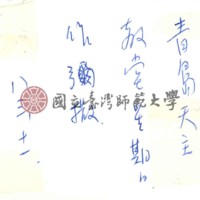 青島天主
教堂星期日
作彌撒
八、十一、
國立臺灣師範大學